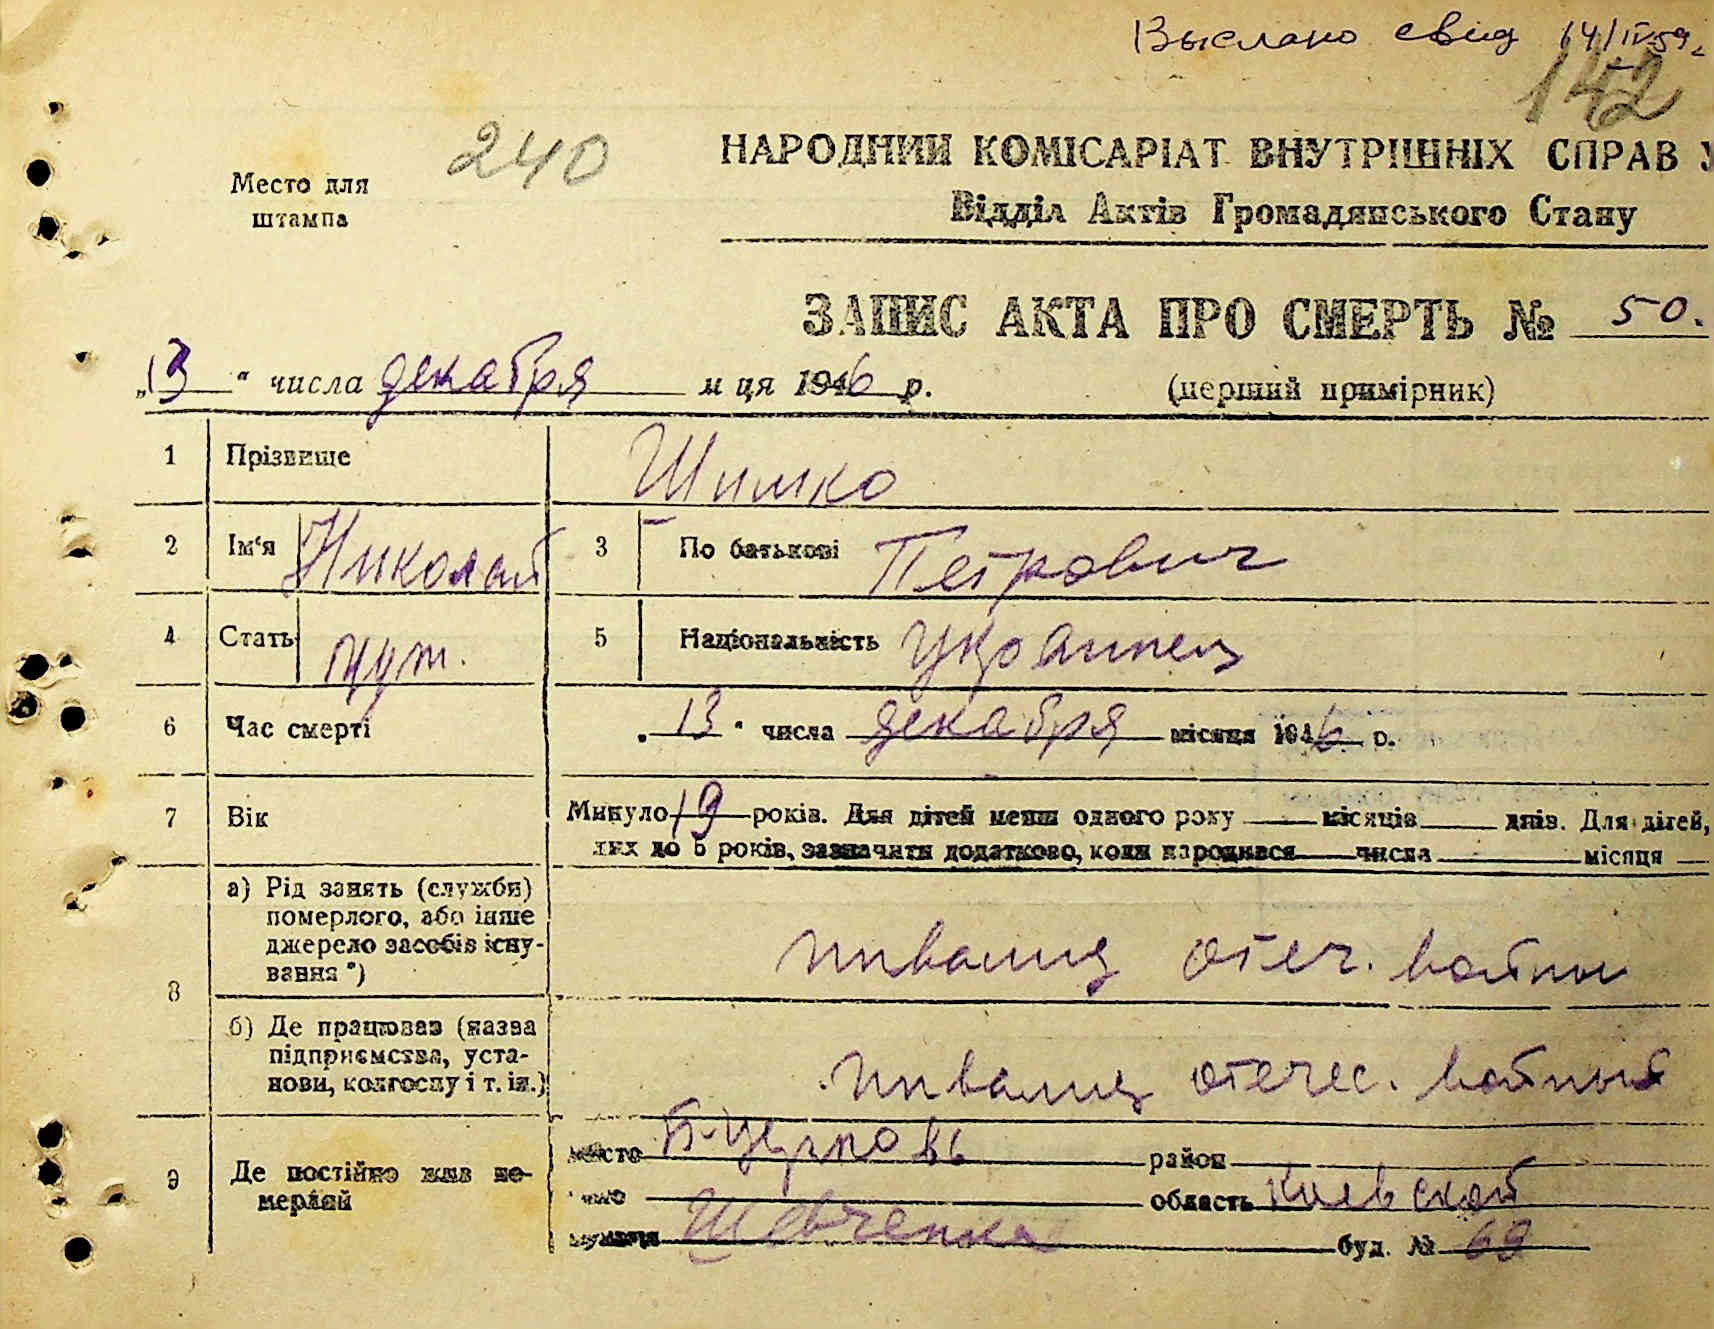 Выслано свид 14/IV-59г
142
240
НАРОДНИЙ КОМІСАРІАТ ВНУТРІШНІХ СПРАВ У
Место для
штампа
Відділ Актів Громадянського Стану
ЗАПИС АКТА ПРО СМЕРТЬ № 50.
„13" числа декабря м ця 1946 р. (перший примірник)
1 Прізвище Шимко
2 Ім'я Николай 3 По батькові Петрович
4 Стать муж. 5 Національність Украинец
6 Час смерті „13" числа декабря місяця 1946 р.
7 Вік Минуло 19 років. Для дітей менш одного року місяців днів. Для дітей,
них до 5 років, зазначити додатково, коли народився числа місяця
8 а) Рід занять (служби)
померлого, або інше
джерело засобів існу-
вання*)
инвалид отеч. войны
б) Де працював (назва
підприємства, уста-
нови, колгоспу і т. ін.)
инвалид отечес. войны
9 Де постійно жив по-
мерлий
місто Б-Церковь район
область Киевской
вулиця Шевченка буд. № 69